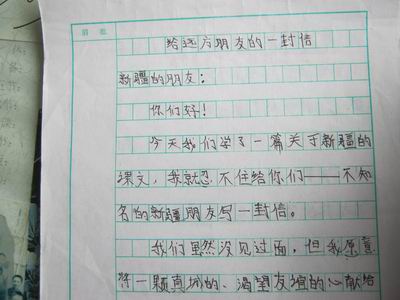 眉批
给远方朋友的一封信
新疆的朋友：
你们好！
今天我们学了一篇关于新疆的
课文，我就忍不住给你们——不知
名的新疆朋友写一封信。
我们虽然没见过面，但我愿意
将一颗真城的、渴望友谊的心献给